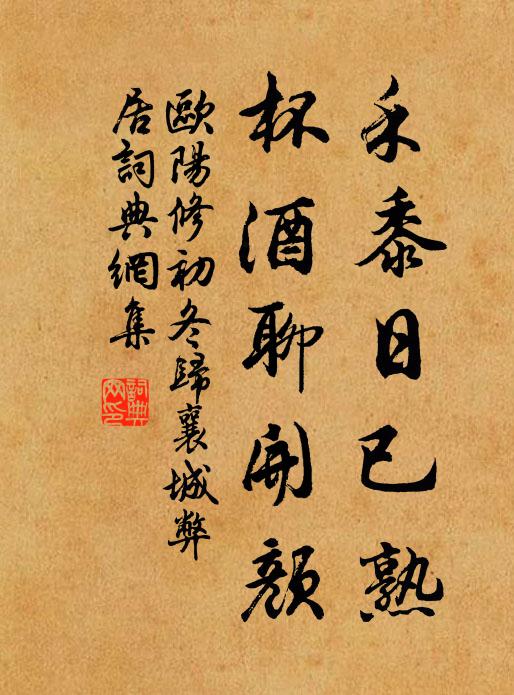 禾黍日已熟
杯酒聊開顏
歐陽修初冬歸襄城弊
居詞典網集
詞典網印